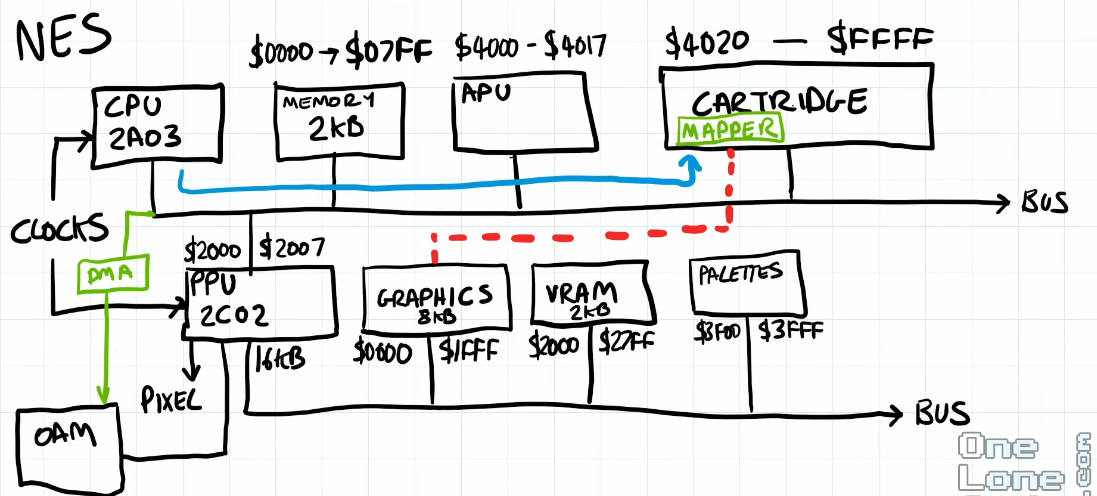 NES
$0000 → $07FF
$4000 - $4017
$4020 — $FFFF
CPU
2A03
MEMORY
2kB
APU
CARTRIDGE
MAPPER
BUS
CLOCKS
DMA
$2000
$2007
PPU
2C02
GRAPHICS
8kB
VRAM
2kB
PALETTES
$0000
$1FFF
$2000
$27FF
$3F00
$3FFF
16kB
PIXEL
OAM
BUS
One
Lone
.com